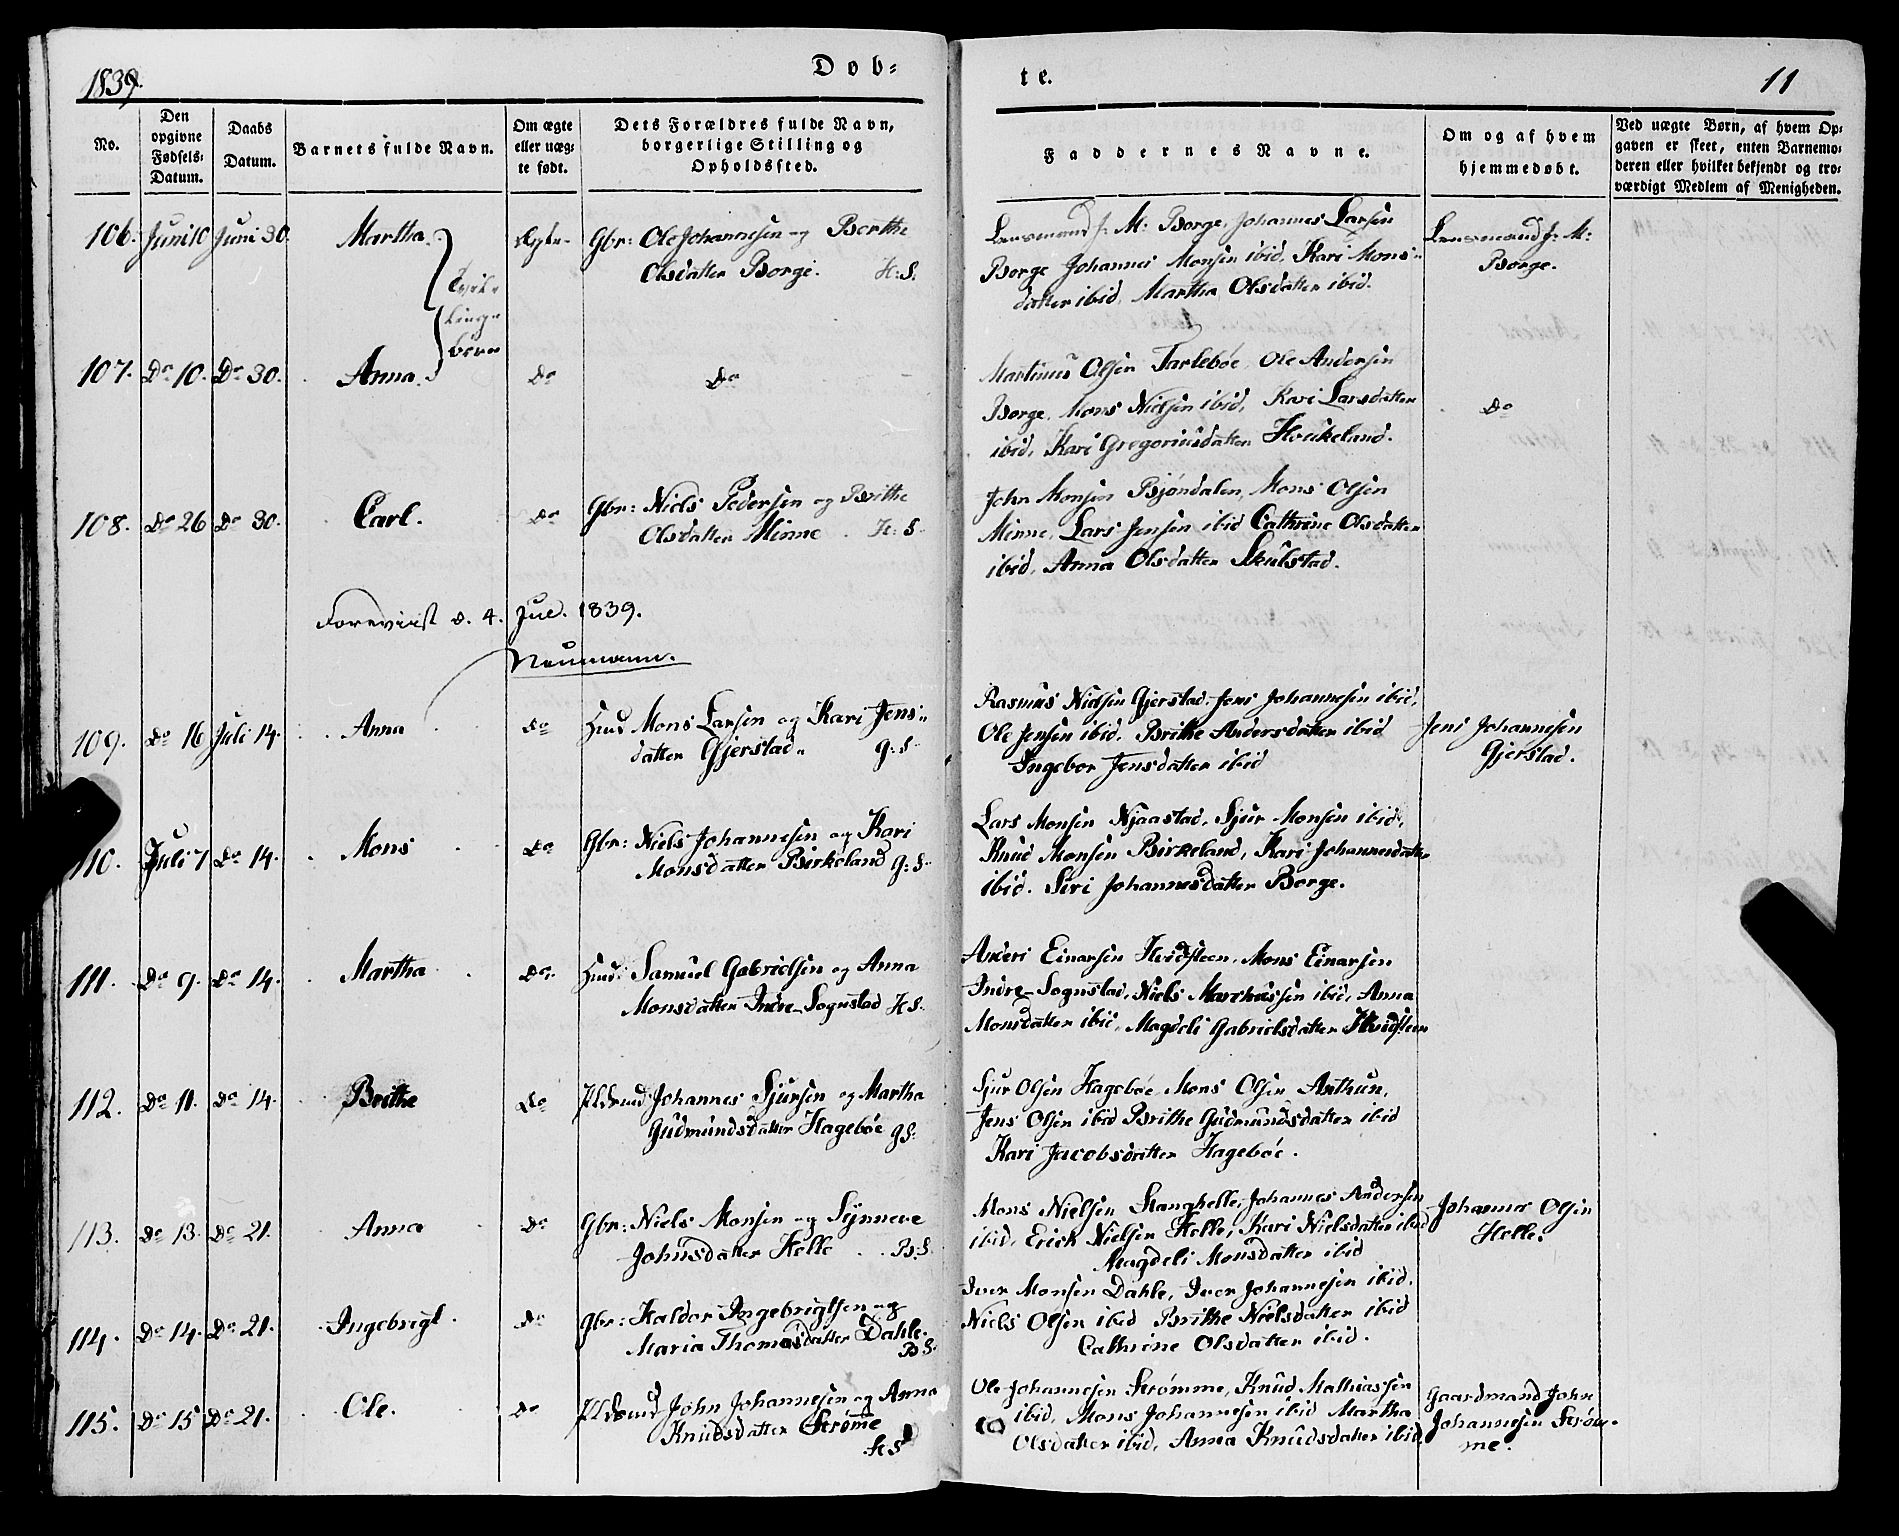 1839.
Døb-
te.
11
No.
Den
opgivne
Fødsels-
Datum.
Daabs
Datum.
Barnets fulde Navn.
Om ægte
eller uæg-
te født.
Dets Forældres fulde Navn,
borgerlige Stilling og
Opholdssted.
Faddernes Navne.
Om og af hvem
hjemmedøbt.
Ved uægte Børn, af hvem Op-
gaven er skeet, enten Barnemo-
deren eller hvilket bekjendt og tro-
værdigt Medlem af Menigheden.
106. Juni 10 Juni 30. Martha. Ægte Gbr: Ole Johannesen og Berthe
Olsdatter Borge. H:S.
Lensmand J: M: Borge, Johannes Larsen
Borge Johannes Monsen ibid. Kari Mons-
datter ibid, Martha Olsdatter ibid.
Lensmand J: M:
Borge.
Tvil-
linge
børn
107. Do 10. Do 30. Anna. Do Do
Martinus Olsen Tarlebøe, Ole Andersen
Borge, Mons Nielsen ibid, Kari Larsdatter
ibid, Kari Gregoriusdatter Houkeland.
Do
108. Do 26 Do 30. Carl. Do Gbr: Niels Pedersen og Brithe
Olsdatter Minne. H:S.
John Monsen Bjøndalen, Mons Olsen
Minne, Lars Jensen ibid Cathrine Olsdatter
ibid, Anna Olsdatter Skulstad.
Foreviist d. 4. Jul. 1839.
Neumann.
109. Do 16 Juli 14. Anna Do Huus Mons Larsen og Kari Jens-
datter Gjerstad. G:S.
Rasmus Nielsen Gjerstad, Jens Johannesen ibid,
Ole Jensen ibid, Brithe Andersdatter ibid
Ingebor Jensdatter ibid
Jens Johannesen
Gjerstad.
110. Juli 7 Do 14. Mons Do Gbr: Niels Johannesen og Kari
Monsdatter Birkeland G:S.
Lars Monsen Njaastad, Sjur Monsen ibid,
Knud Monsen Birkeland, Kari Johannesdatter
ibid. Siri Johannesdatter Borge.
111. Do 9. Do 14. Martha Do Huus: Samuel Gabrielsen og Anna
Monsdatter Indre-Sognstad H:S.
Anders Einarsen Hvidsteen, Mons Einarsen
Indre-Sognstad, Niels Marthussen ibid, Anna
Monsdatter ibid, Magdeli Gabrielsdatter Hvidsteen
112. Do 11. Do 14. Brithe Do Johannes Sjursen og Martha
Gudmundsdatter Hagebøe G:S.
Sjur Olsen Hagebøe Mons Olsen Arthun,
Jens Olsen ibid Brithe Gudmundsdatter ibid
Kari Jacobsdatter Hagebøe.
113. Do 13. Do 21. Anna Do Gbr: Niels Monsen og Synneve
Johnsdatter Helle B:S.
Mons Nielsen Stanghelle, Johannes Andersen
ibid, Erick Nielsen Helle, Kari Nielsdatter ibid
Magdeli Monsdatter ibid
Johannes Olsen
Helle.
114. Do 14. Do 21. Ingebrigt Do Gbr: Haldor Ingebrigtsen og
Maria Thomasdatter Dahle.
B:S.
Iver Monsen Dahle, Iver Johannesen ibid.
Niels Olsen ibid Brithe Nielsdatter ibid
Cathrine Olsdatter ibid.
115. Do 15 Do 21. Ole. Do John Johannesen og Anna
Knudsdatter Strømme
H:S
Ole Johannesen Strømme, Knud Mathiassen
ibid, Mons Johannesen ibid Martha
Olsdatter ibid, Anna Knudsdatter ibid,
Gaardmand John
Johannesen Strøm-
me.